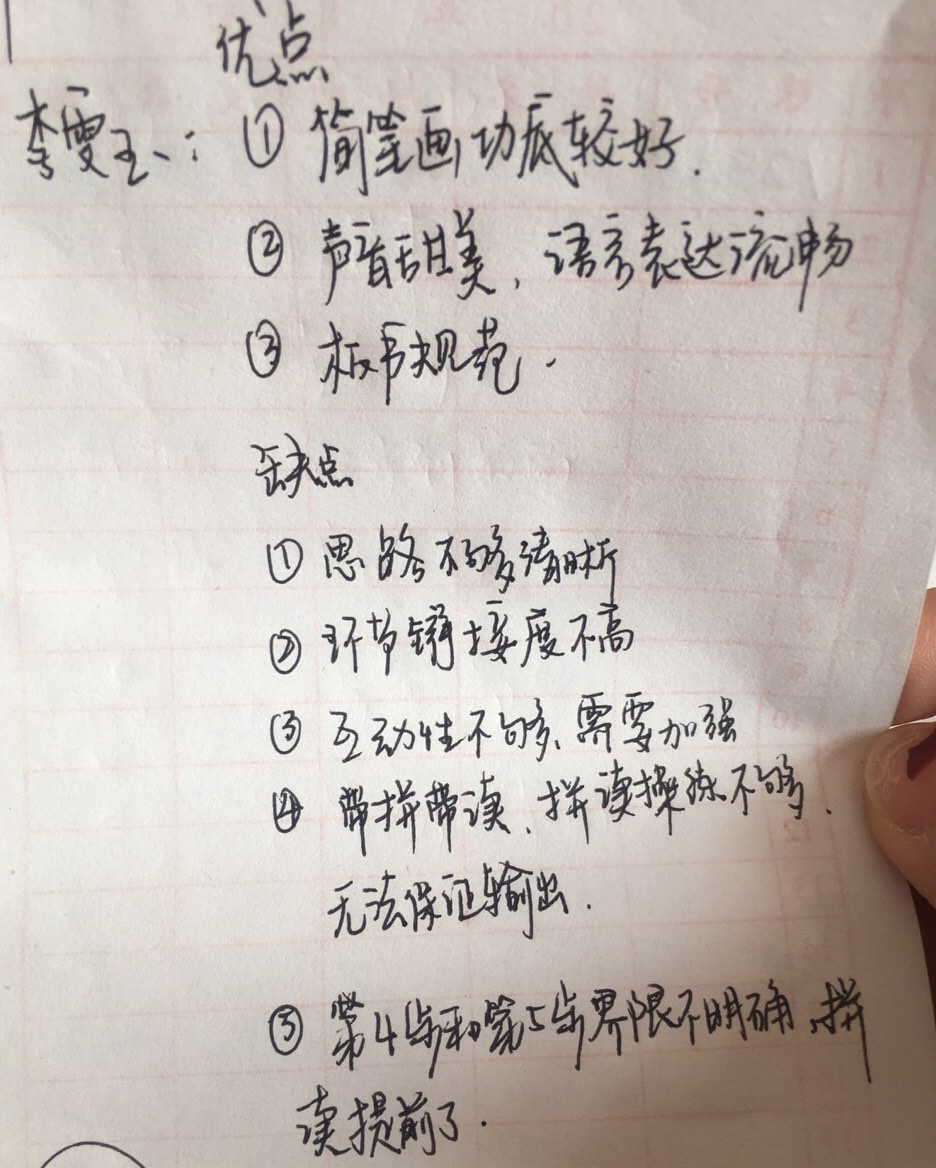 优点
李雯玉: ① 简笔画功底较好.
② 声音甜美, 语言表达流畅
③ 板书规范.
缺点
① 思路不够清晰
② 环节链接度不高
③ 互动性不够、需要加强
④ 带拼带读、拼读操练不够.
无法保证输出.
⑤ 第4步和第5步界限不明确,拼
读提前了.